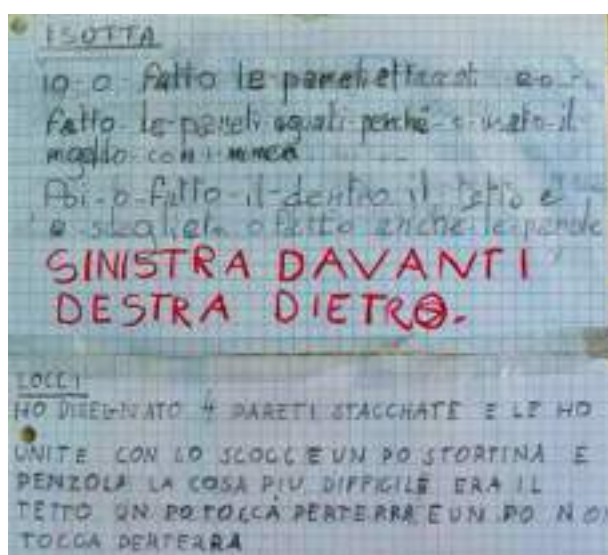 ISOTTA
io-o-fatto le pareti
fatto-le-pareti-uguali-perché-o-usato-il
modello-con
Poi-o-fatto-il-dentro il tetto e
o fatto anche le parole
SINISTRA DAVANTI
DESTRA DIETRO.
LOCCI
HO DISEGNATO 4 PARETI STACCHATE E LE HO
UNITE CON LO SCOCC E UN PO STORTINA E
PENZOLA LA COSA PIU DIFFICILE ERA IL
TETTO UN PO TOCCA PERTERRA E UN PO NON
TOCCA PERTERRA